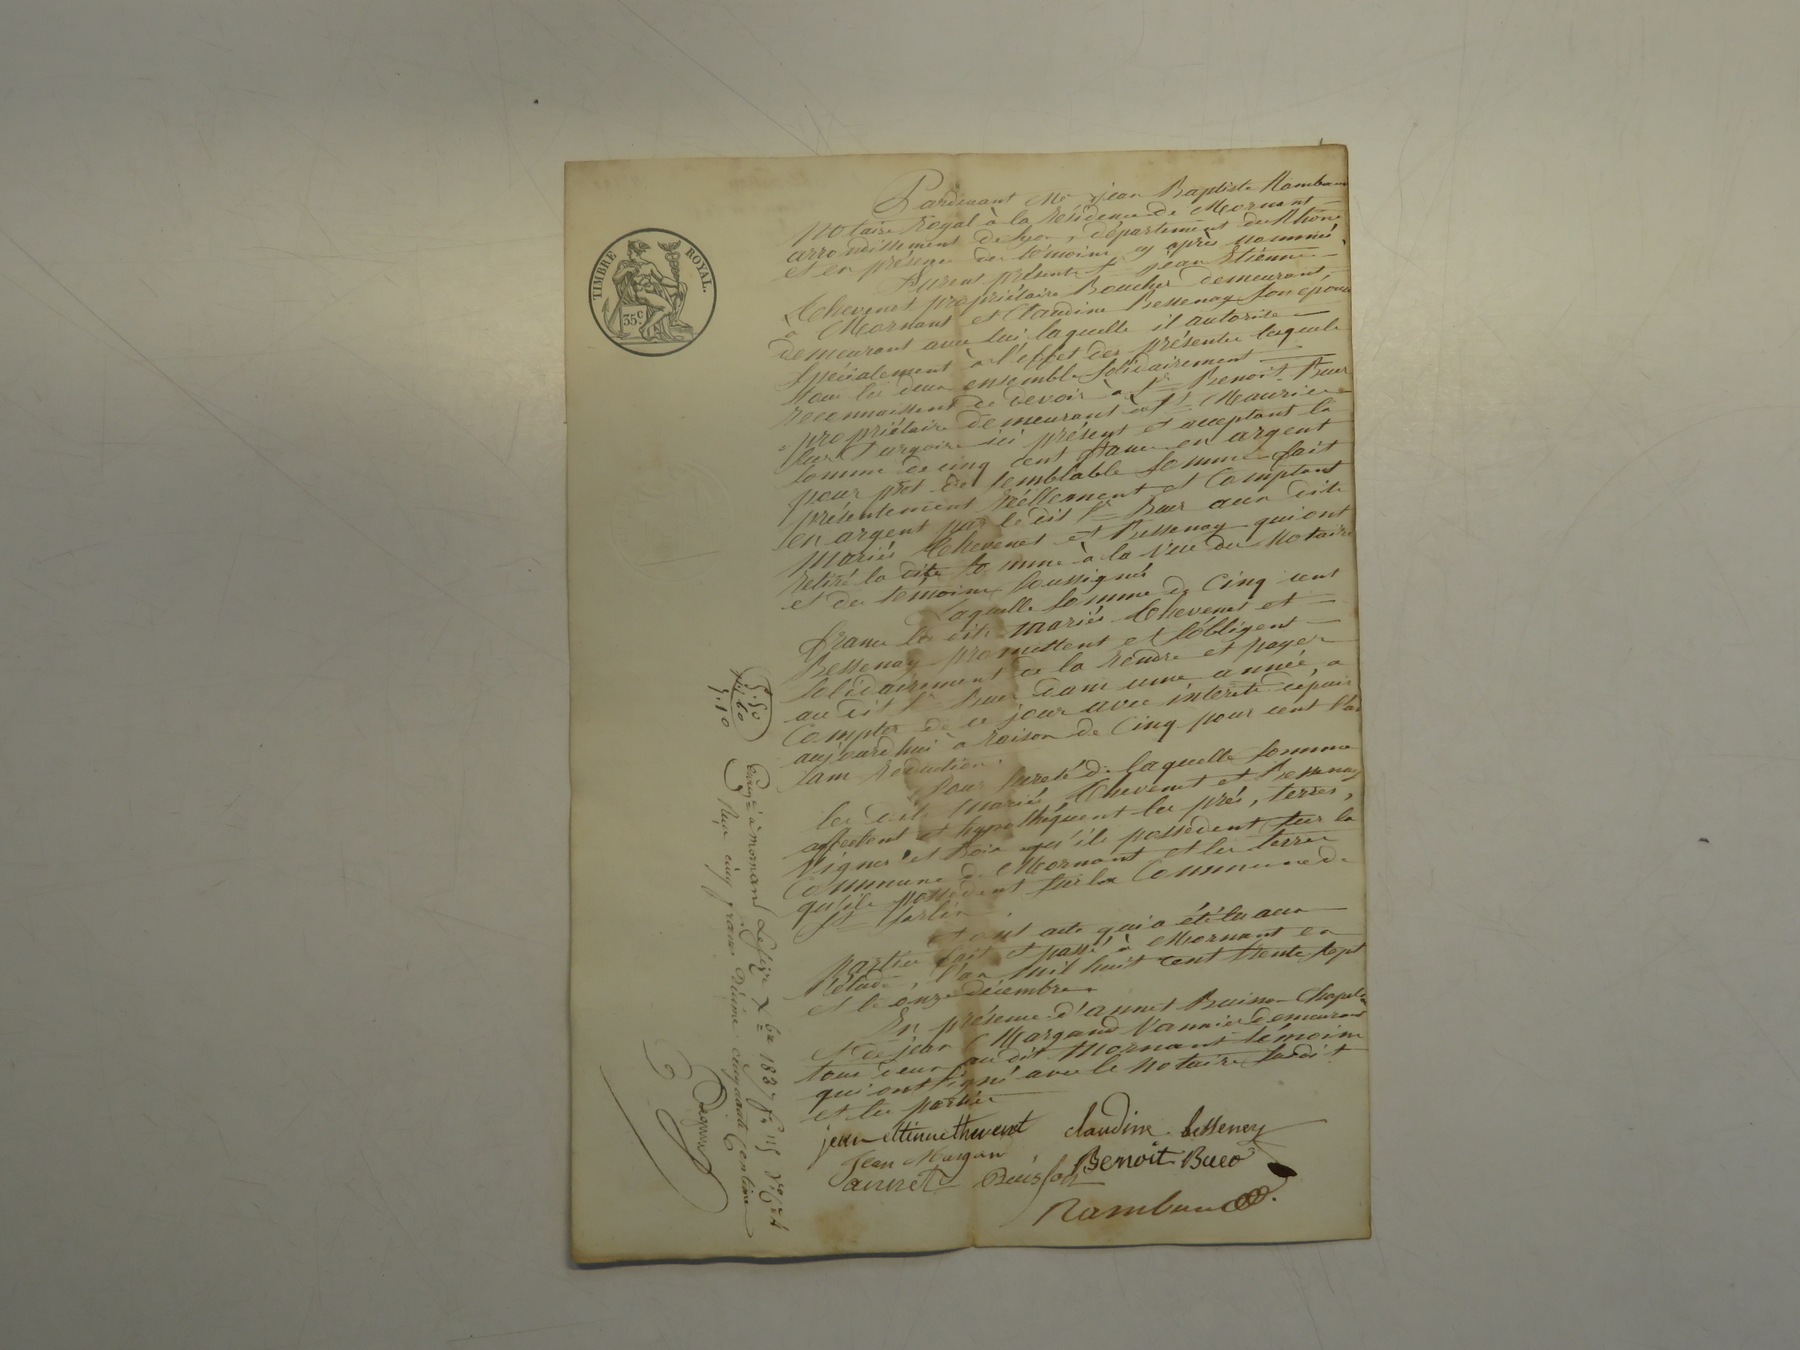 TIMBRE ROYAL.
35 c.
Pardevant Me jean Baptiste Rambau
Notaire Royal à la résidence de Mornant
arrondissement de Lyon, département du Rhône
et en présence des témoins cy après nommés
furent présents Sr jean Etienne
Thevenet propriétaire Boucher demeurant
à Mornant et Claudine Bessenay son épouse
demeurant avec lui laquelle il autorise
spécialement à l'effet des présentes lesquels
tous les deux ensemble solidairement
reconnaissent de devoir à Sr Benoit Buer
propriétaire demeurant à St Maurice
sur Dargoire ici présent et acceptant la
somme de cinq cent francs en argent
pour prêt de semblable somme fait
présentement réellement et comptant
en argent par le dit Sr Buer aux dits
mariés Thevenet et Bessenay qui ont
retiré la dite somme à la vue du Notaire
et des témoins soussignés
Laquelle somme de Cinq cent
francs les dits mariés Thevenet et
Bessenay promettent et s'obligent
solidairement de la rendre et payer
au dit Sr Buer dans une année, à
compter de ce jour avec intérêts depuis
aujourd'hui à raison de Cinq pour cent l'an
sans réduction.
Pour sureté de laquelle somme
les dits mariés Thevenet et Bessenay
affectent et hypothéquent les prés, terres,
vignes et Bois qu'ils possèdent sur la
Commune de Mornant et les terres
qu'ils possèdent sur la Commune de
St Sorlin
Dont acte qui a été lu aux
parties fait et passé à Mornant en
l'étude, l'an mil huit cent trente sept
et le onze décembre.
En présence d'annet Buisson Chapelier
et de jean Margand Vannier demeurant
tous deux au dit Mornant témoins
qui ont signé avec le Notaire susdit
et les parties
jean ettinne thevenet claudine bessenay
Jean Margan Benoit Buer
annet Buisson
Rambau
5.50
5.10
Enregé à mornant Le Xbre 1837 fo 115
Reçu cinq francs Décime cinquante Centimes